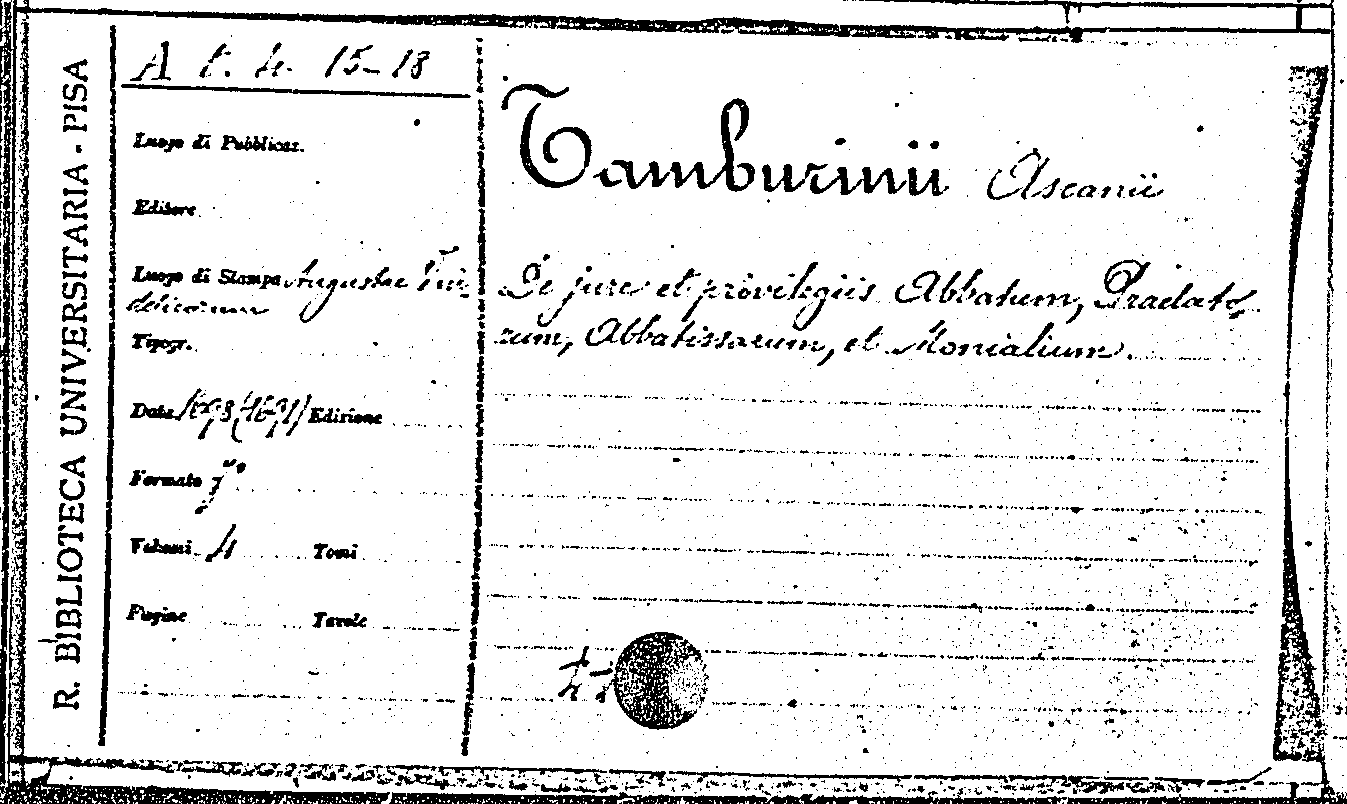 R. BIBLIOTECA UNIVERSITARIA - PISA
A t. 4. 15-18
Luogo di Pubblicaz.
Editore
Luogo di Stampa Augustae Vin-
delicorum
Tipogr.
Data 1698 (1691) Edizione
Formato f°
Volumi 4 Tomi
Pagine Tavole
Tamburinii Ascanii
De jure et privilegiis Abbatum, Praelato-
rum, Abbatissarum, et Monialium.